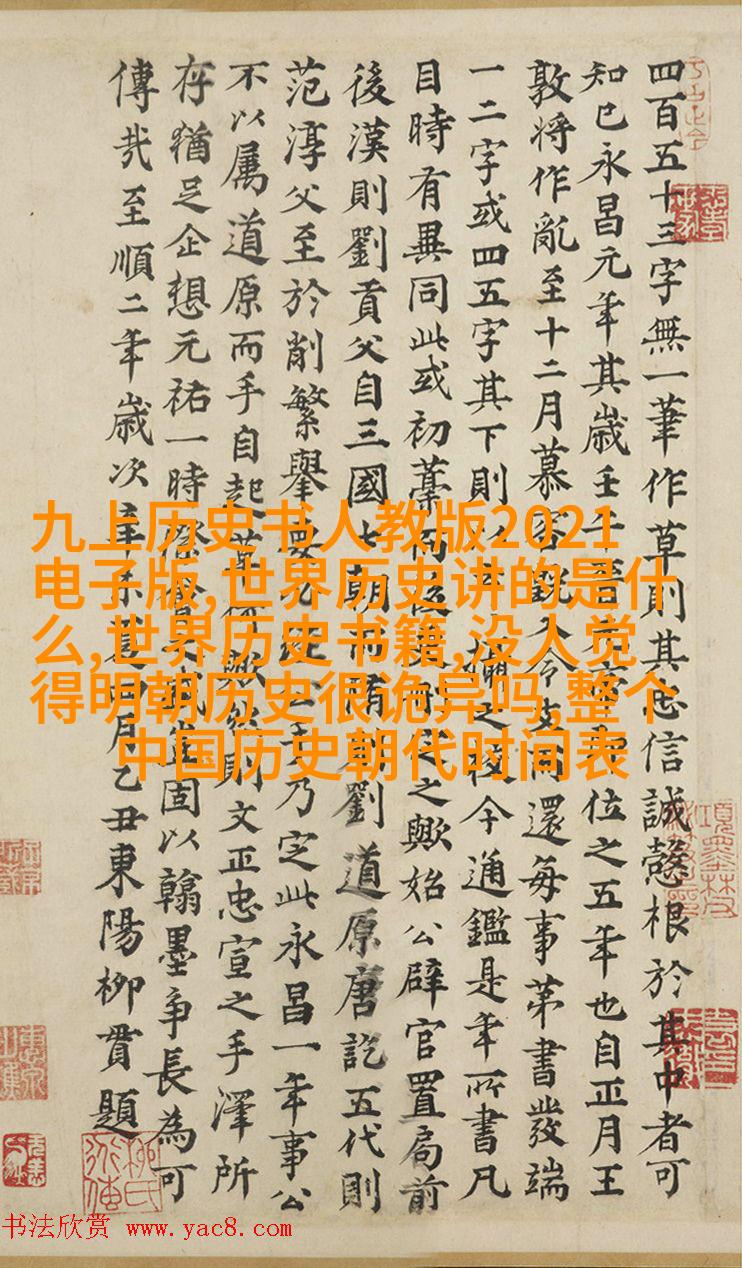 四百五十三字無一筆作草則其忠信誠慤根於其中者可
知已永昌元年其歲壬午晉元位之五年也自正月王
敦將作亂至十二月慕容皝入令支而還每事第書發端
一二字或四五字其下則以之校今通鑑是年所書凡
目時有異同此或初藁而後之歟始公辟官置局前
後漢則劉貢父自三國七朝而隋則劉道原唐訖五代則
范淳父至於削繁舉要必經公手乃定此永昌一年事公
不以屬道原而手自起草何歟然則文正忠宣之手澤所
存猶足企想元祐一時際會之盛豈固以翰墨爭長為可
傳哉至順二年歲次辛未夏四月乙丑東陽柳貫題
九上历史书人教版2021
电子版,世界历史讲的是什
么,世界历史书籍,没人觉
得明朝历史很诡异吗,整个
中国历史朝代时间表
书法欣赏 www.yac8.com